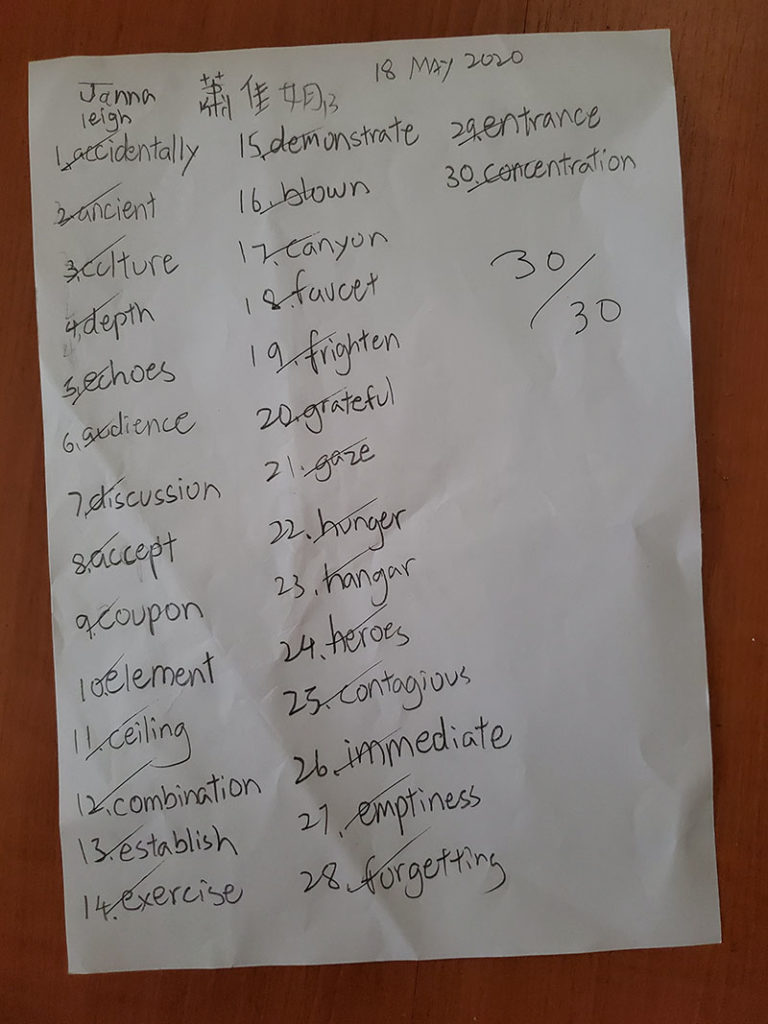 Janna 蕭 佳 13 18 MAY 2020
leigh
1. accidentally
2. ancient
3. culture
4. depth
5. echoes
6. audience
7. discussion
8. accept
9. coupon
10. element
11. ceiling
12. combination
13. establish
14. exercise
15. demonstrate
16. blown
17. canyon
18. faucet
19. frighten
20. grateful
21. gaze
22. hunger
23. hangar
24. heroes
25. contagious
26. immediate
27. emptiness
28. forgetting
29. entrance
30. concentration
30/30